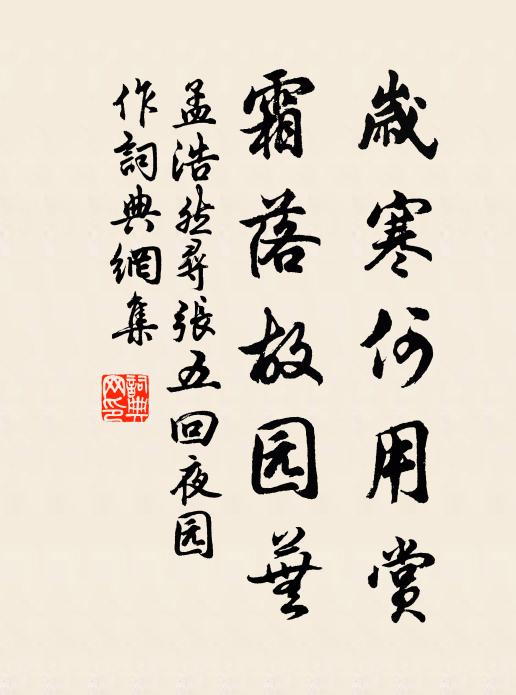 歲寒何用賞
霜落故园蕪
孟浩然尋張五回夜园
作詞典網集
詞典网印